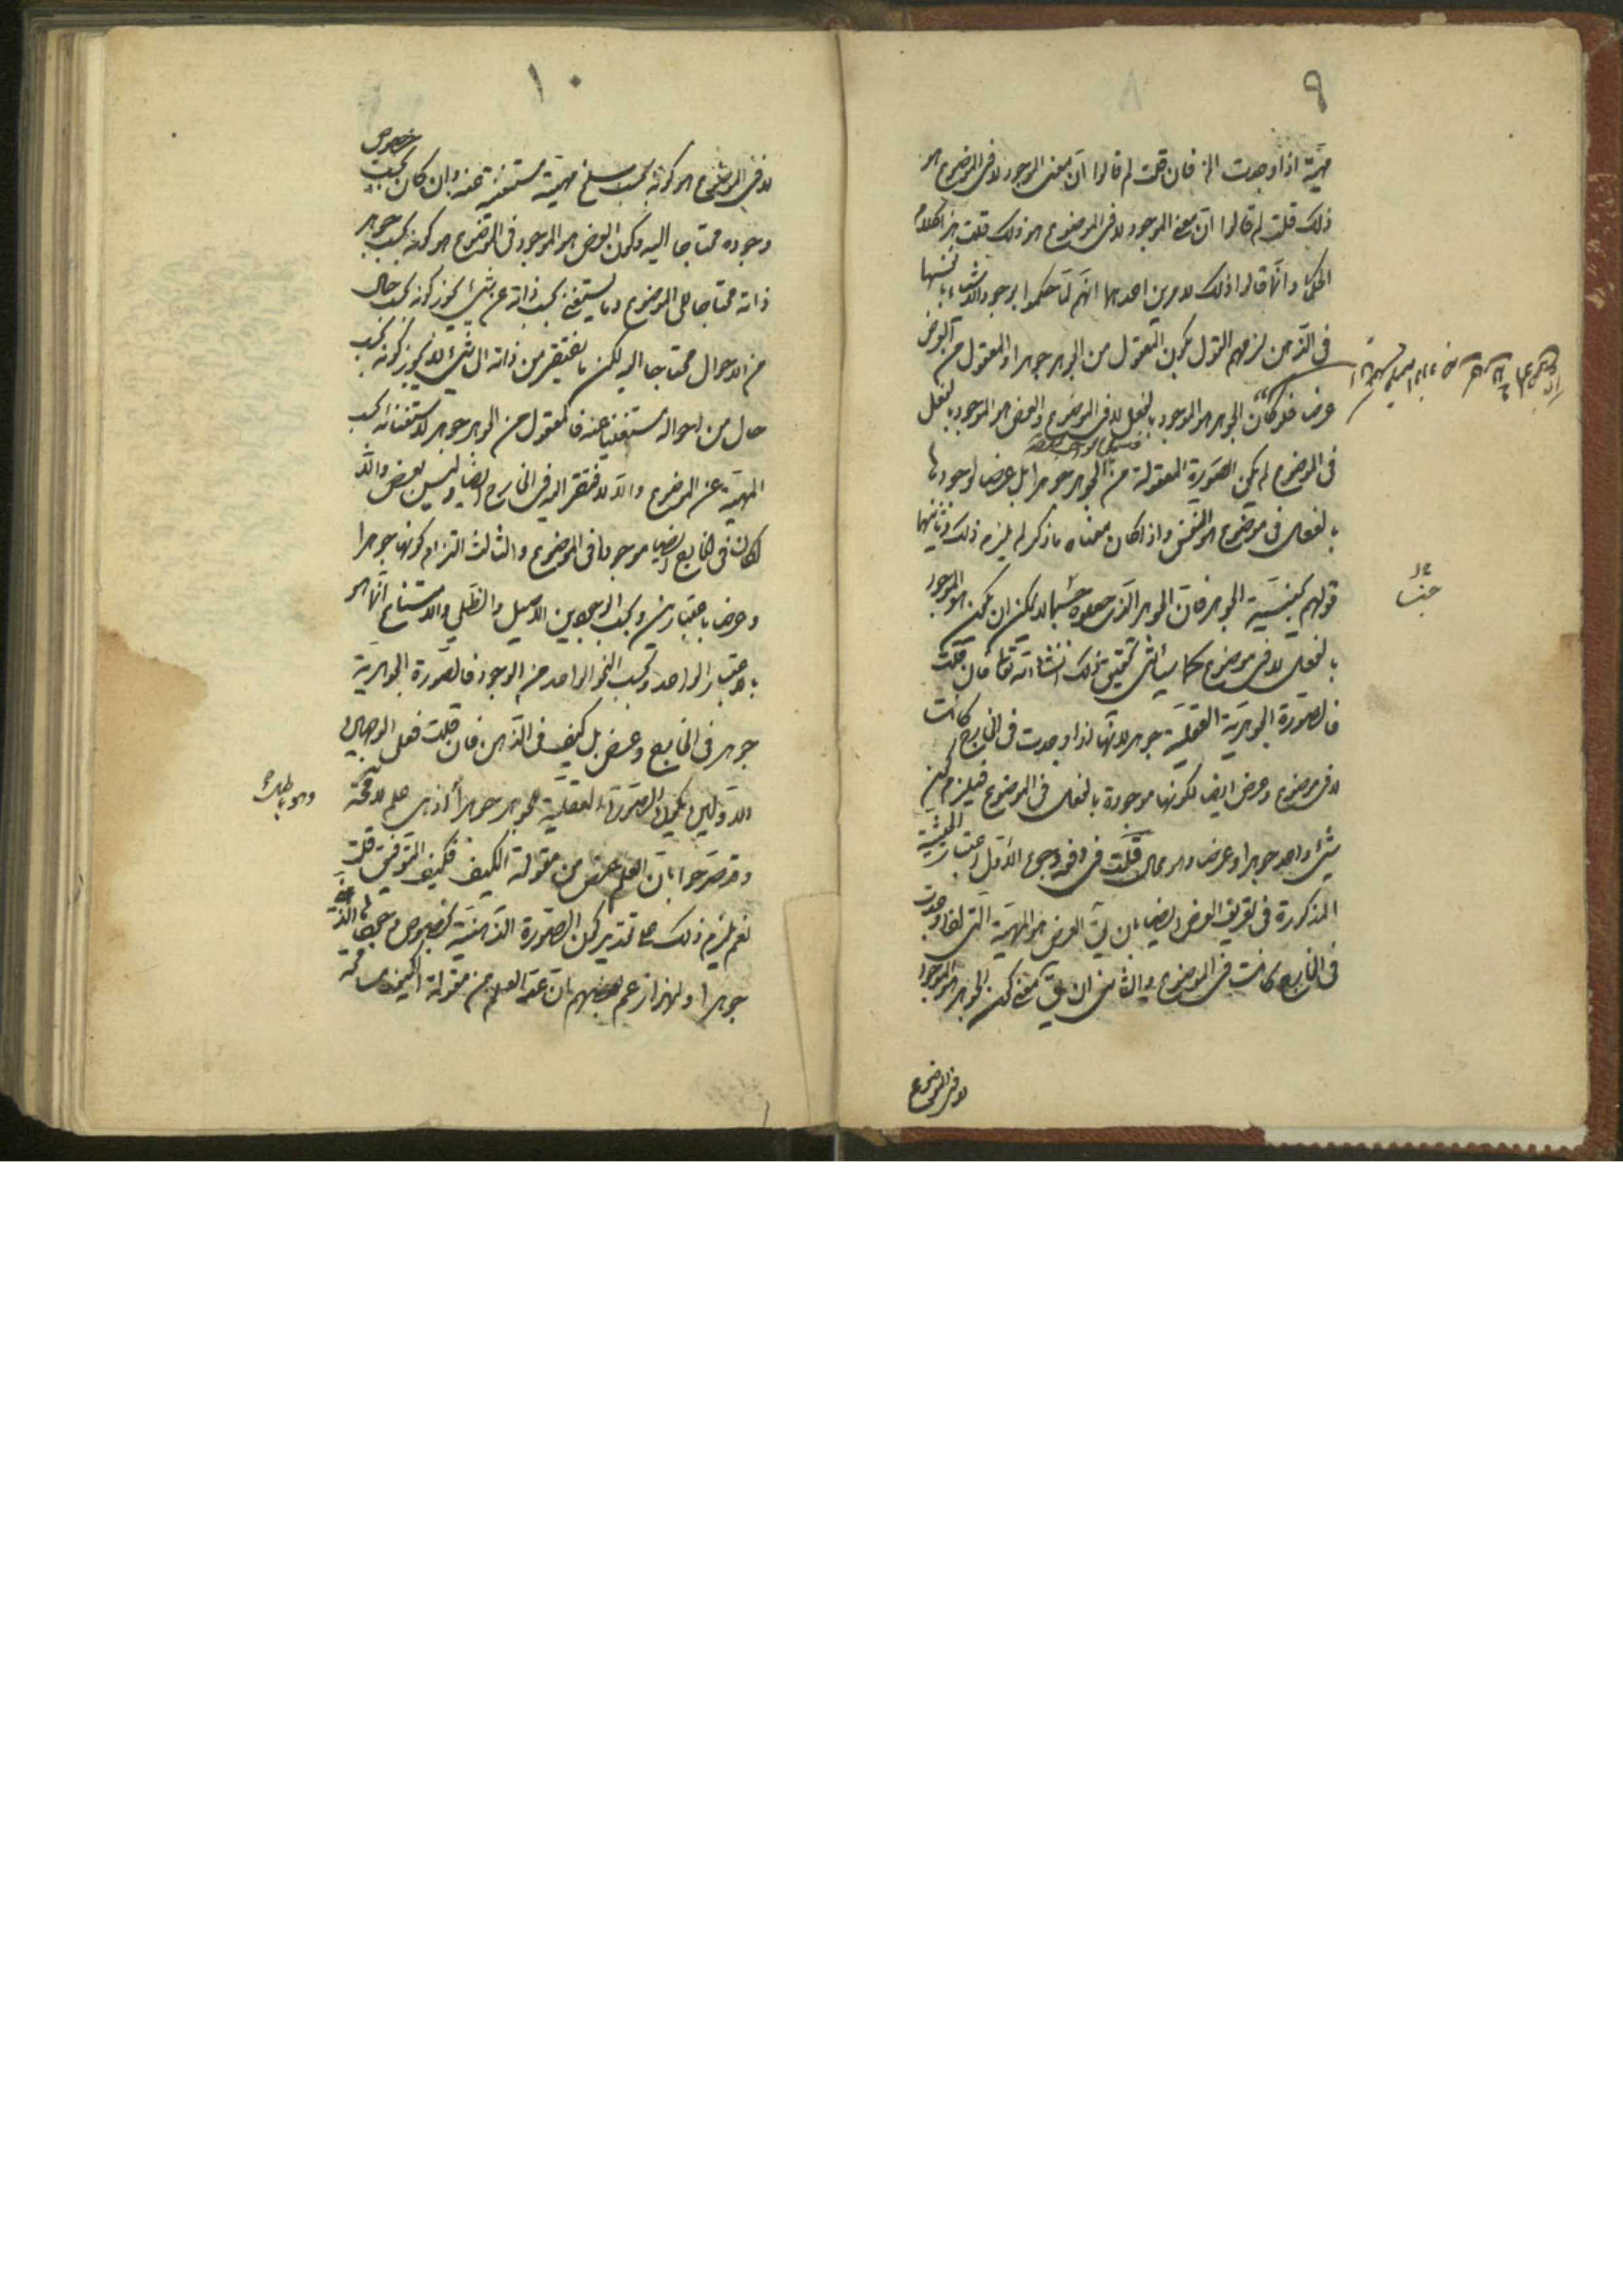 ٩
مهيّة اذا وجدت الخ فان قلت لم قالوا انّ معنى الموجود لا فى الموضوع هو
ذلك قلت لم قالوا انّ معنى الموجود لا فى الموضوع هو ذلك قلت هذا كلام
الحكماء وانّما قالوا ذلك لامرين احدهما انّهم لمّا حكموا بوجود الاشياء بانفسها
فى الذهن لزمهم القول بكون المعقول من الجوهر جوهرا والمعقول من العرض
عرضا فلو كان الجوهر هو الموجود بالفعل لا فى الموضوع والعرض هو الموجود بالفعل
فى الموضوع لم يكن الصّورة المعقولة من الجوهر جوهرا بل عرضا لوجودها
بالفعل فى موضوع هو النّفس واذا كان معناه ما ذكر لم يلزم ذلك وثانيهما
قولهم بجنسيّة الجوهر فانّ الجوهر الّذى جعلوه جنسا لا يمكن ان يكون هو الموجود
بالفعل لا فى موضوع كما سيأتى تحقيق ذلك انشاءاللّه تعالى فان قلت
فالصّورة الجوهريّة العقليّة جوهر لانّها اذا وجدت فى الخارج كانت
لا فى موضوع وعرض ايضا لكونها موجودة بالفعل فى الموضوع فيلزم كون
شىء واحد جوهرا وعرضا وهو محال قلت فى دفعه وجوه الاوّل اعتبار الحيثيّة
المذكورة فى تعريف العرض ايضا بان يقال العرض هو المهيّة الّتى اذا وجدت
فى الخارج كانت فى الموضوع والثانى ان يقال معنى كون الجوهر هو الموجود
لا فى الموضوع
جنسا
١٠
لا فى الموضوع هو كونه بحسب سنخ مهيّته مستغنية عنه وان كان بحسب خصوص
وجوده محتاجا اليه وكون العرض هو الموجود فى الموضوع هو كونه بحسب جوهر
ذاته محتاجا الى الموضوع وما يستغنى بحسب ذاته عن شىء يجوز كونه بحسب حال
من الاحوال محتاجا اليه لكن ما يفتقر من ذاته الى شىء لا يجوز كونه بحسب
حال من احواله مستغنيا عنه فالمعقول من الجوهر جوهر لاستغنائه بحسب
المهيّة عن الموضوع والّا لافتقر اليه فى الخارج ايضا وليس بعرض والّا
لكان فى الخارج ايضا موجودا فى الموضوع والثالث التزام كونها جوهرا
وعرضا باعتبارين وبحسب الوجودين الاصيل والظّلى والامتناع انّما هو
بالاعتبار الواحد وبحسب النحو الواحد من الوجود فالصّورة الجوهرية
جوهر فى الخارج وعرض بل كيف فى الذهن فان قلت فعلى الوجهين
الاوّلين يكون الصّورة العقليّة للجوهر جوهرا اذ هى علم لا محة
وقد صرّحوا بانّ العلم عرض من مقولة الكيف فكيف التوفيق قلت
نعم يلزم ذلك على تقدير كون الصّورة الذهنيّة
جوهرا ولهذا زعم بعضهم انّ عدّ العلم من مقولة الكيف
وهو باطل